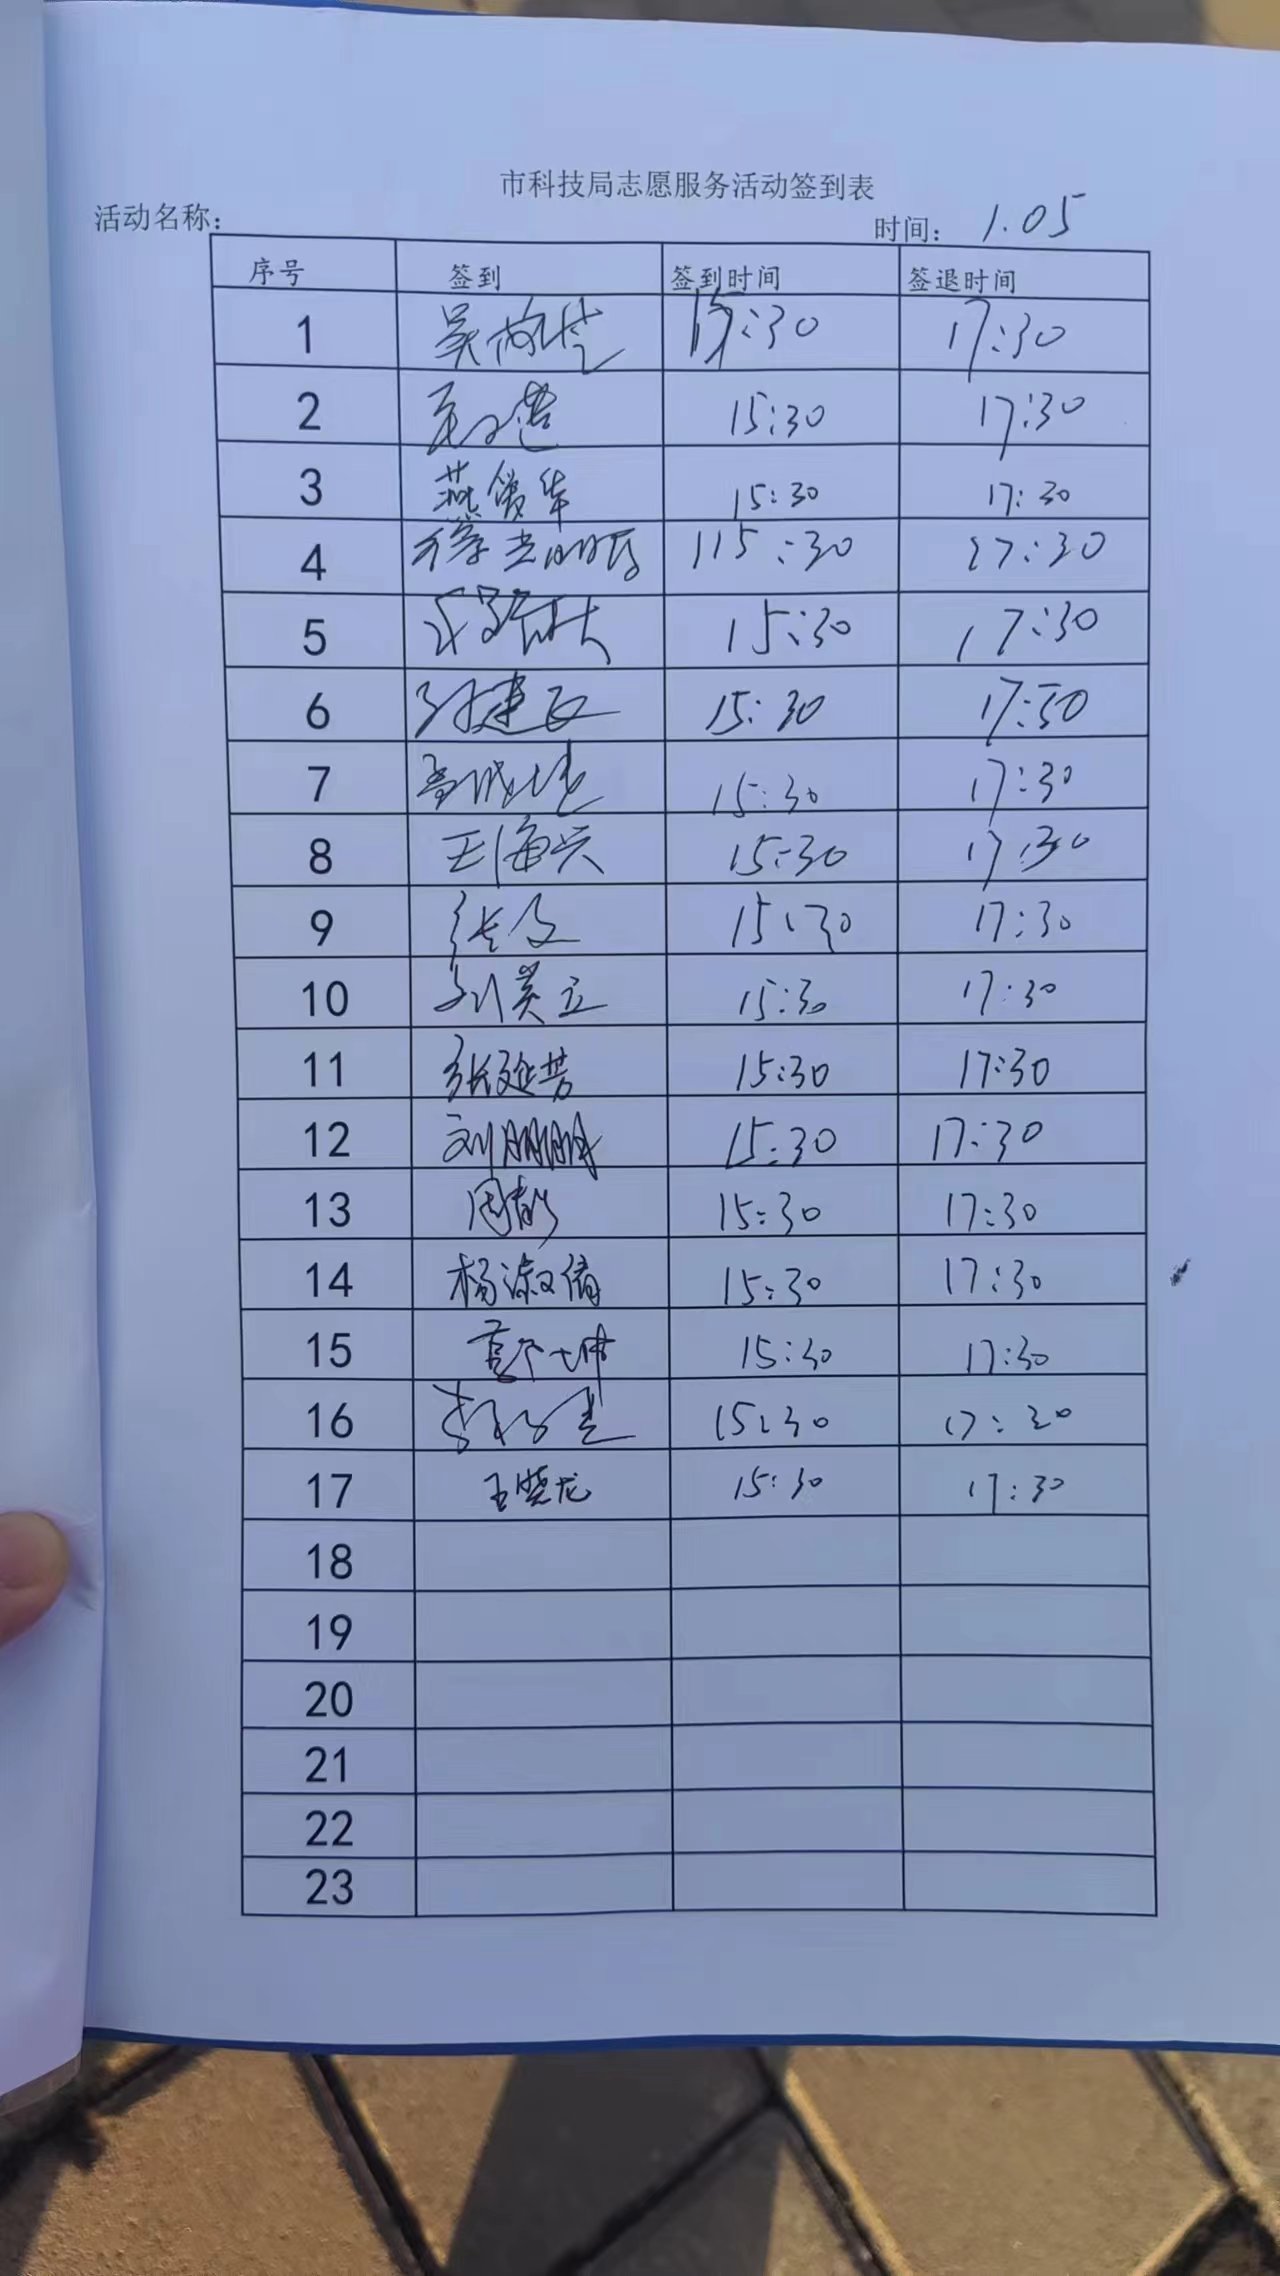 市科技局志愿服务活动签到表
活动名称： 时间： 1.05
序号 签到 签到时间 签退时间
1 15:30 17:30
2 15:30 17:30
3 15:30 17:30
4 115:30 17:30
5 15:30 17:30
6 15:30 17:50
7 15:30 17:30
8 王海兴 15:30 17:30
9 15:30 17:30
10 刘英立 15:30 17:30
11 张延芳 15:30 17:30
12 刘朋朋 15:30 17:30
13 15:30 17:30
14 杨淑倩 15:30 17:30
15 15:30 17:30
16 15:30 17:30
17 王晓龙 15:30 17:30
18
19
20
21
22
23